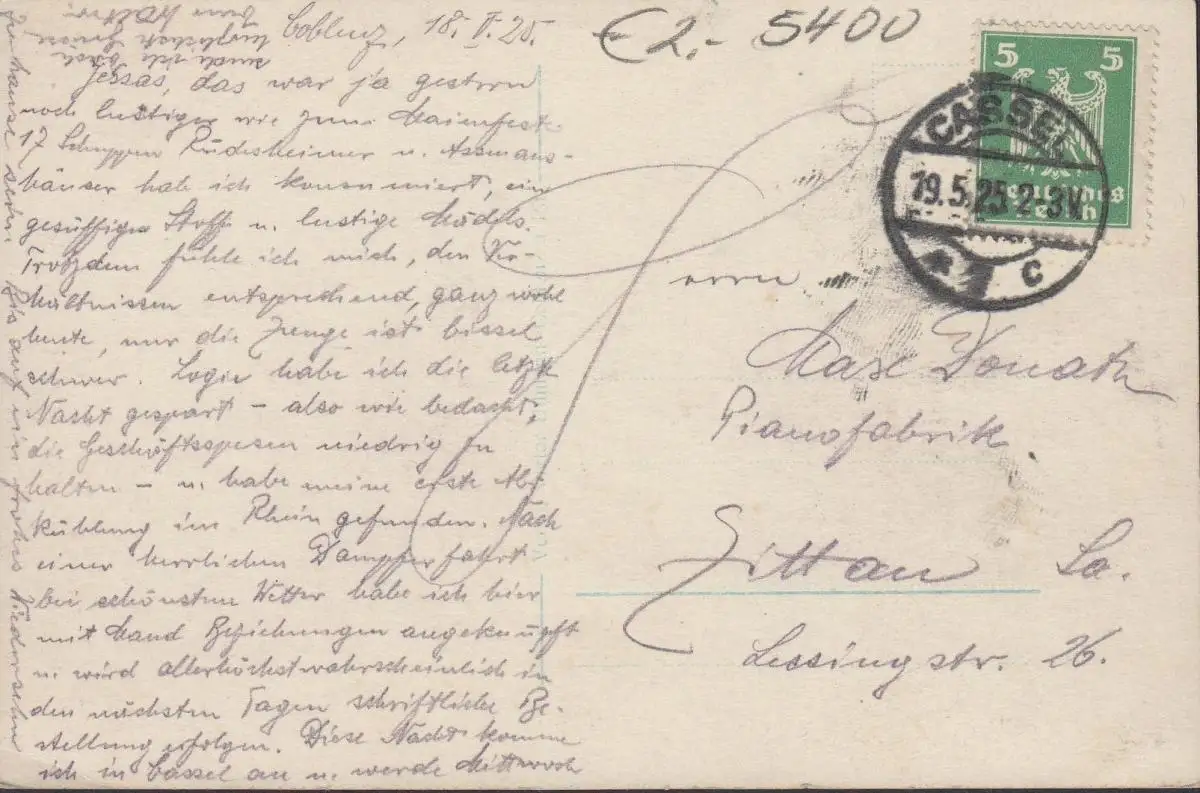 Coblenz, 18. V. 25.
Jessas, das war ja gestern
noch lustiger wie zum Maienfest
17 Schoppen Rüdesheimer u. Assmans-
häuser hab ich konsumiert, ein
gesüffiger Stoff u. lustige Mädels.
Trotzdem fühle ich mich, den Ver-
hältnissen entsprechend, ganz wohl
heute, nur die Zunge ist bissel
schwer. Logie habe ich die letzte
Nacht gespart – also wie bedacht,
die Geschäftsspesen niedrig zu
halten – u. habe meine erste Ab-
kühlung im Rhein gefunden. Nach
einer herrlichen Dampferfahrt
bei schönstem Wetter habe ich hier
mit Mand Beziehungen angeknüpft
u. wird allerhöchstwahrscheinlich in
den nächsten Tagen schriftliche Be-
stellung erfolgen. Diese Nacht komme
ich in Cassel an u. werde Mittwoch
zu hause sein. Bis auf ein frohes Wiedersehn
€ 2.- 5400
5 5
Deutsches
Reich
CASSEL
19.5.25 2-3 V.
* c
Herrn
Max Donath
Pianofabrik
Zittau Sa.
Lessingstr. 26.